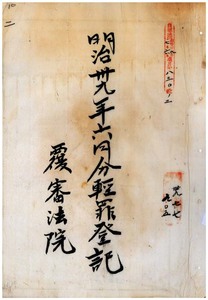 明治卅九年六月分輕罪登記
覆審法院